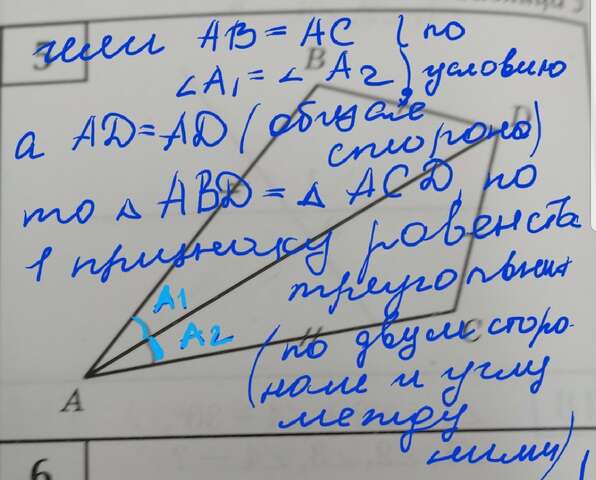 5
или AB = AC } по
B
∠A1 = ∠A2 } условию
D
а AD=AD (общая
сторона)
то △ ABD = △ ACD, по
1 признаку равенста
треугольника
A1
A2
C
(по двум сторо-
A
нам и углу
между
ними)
6